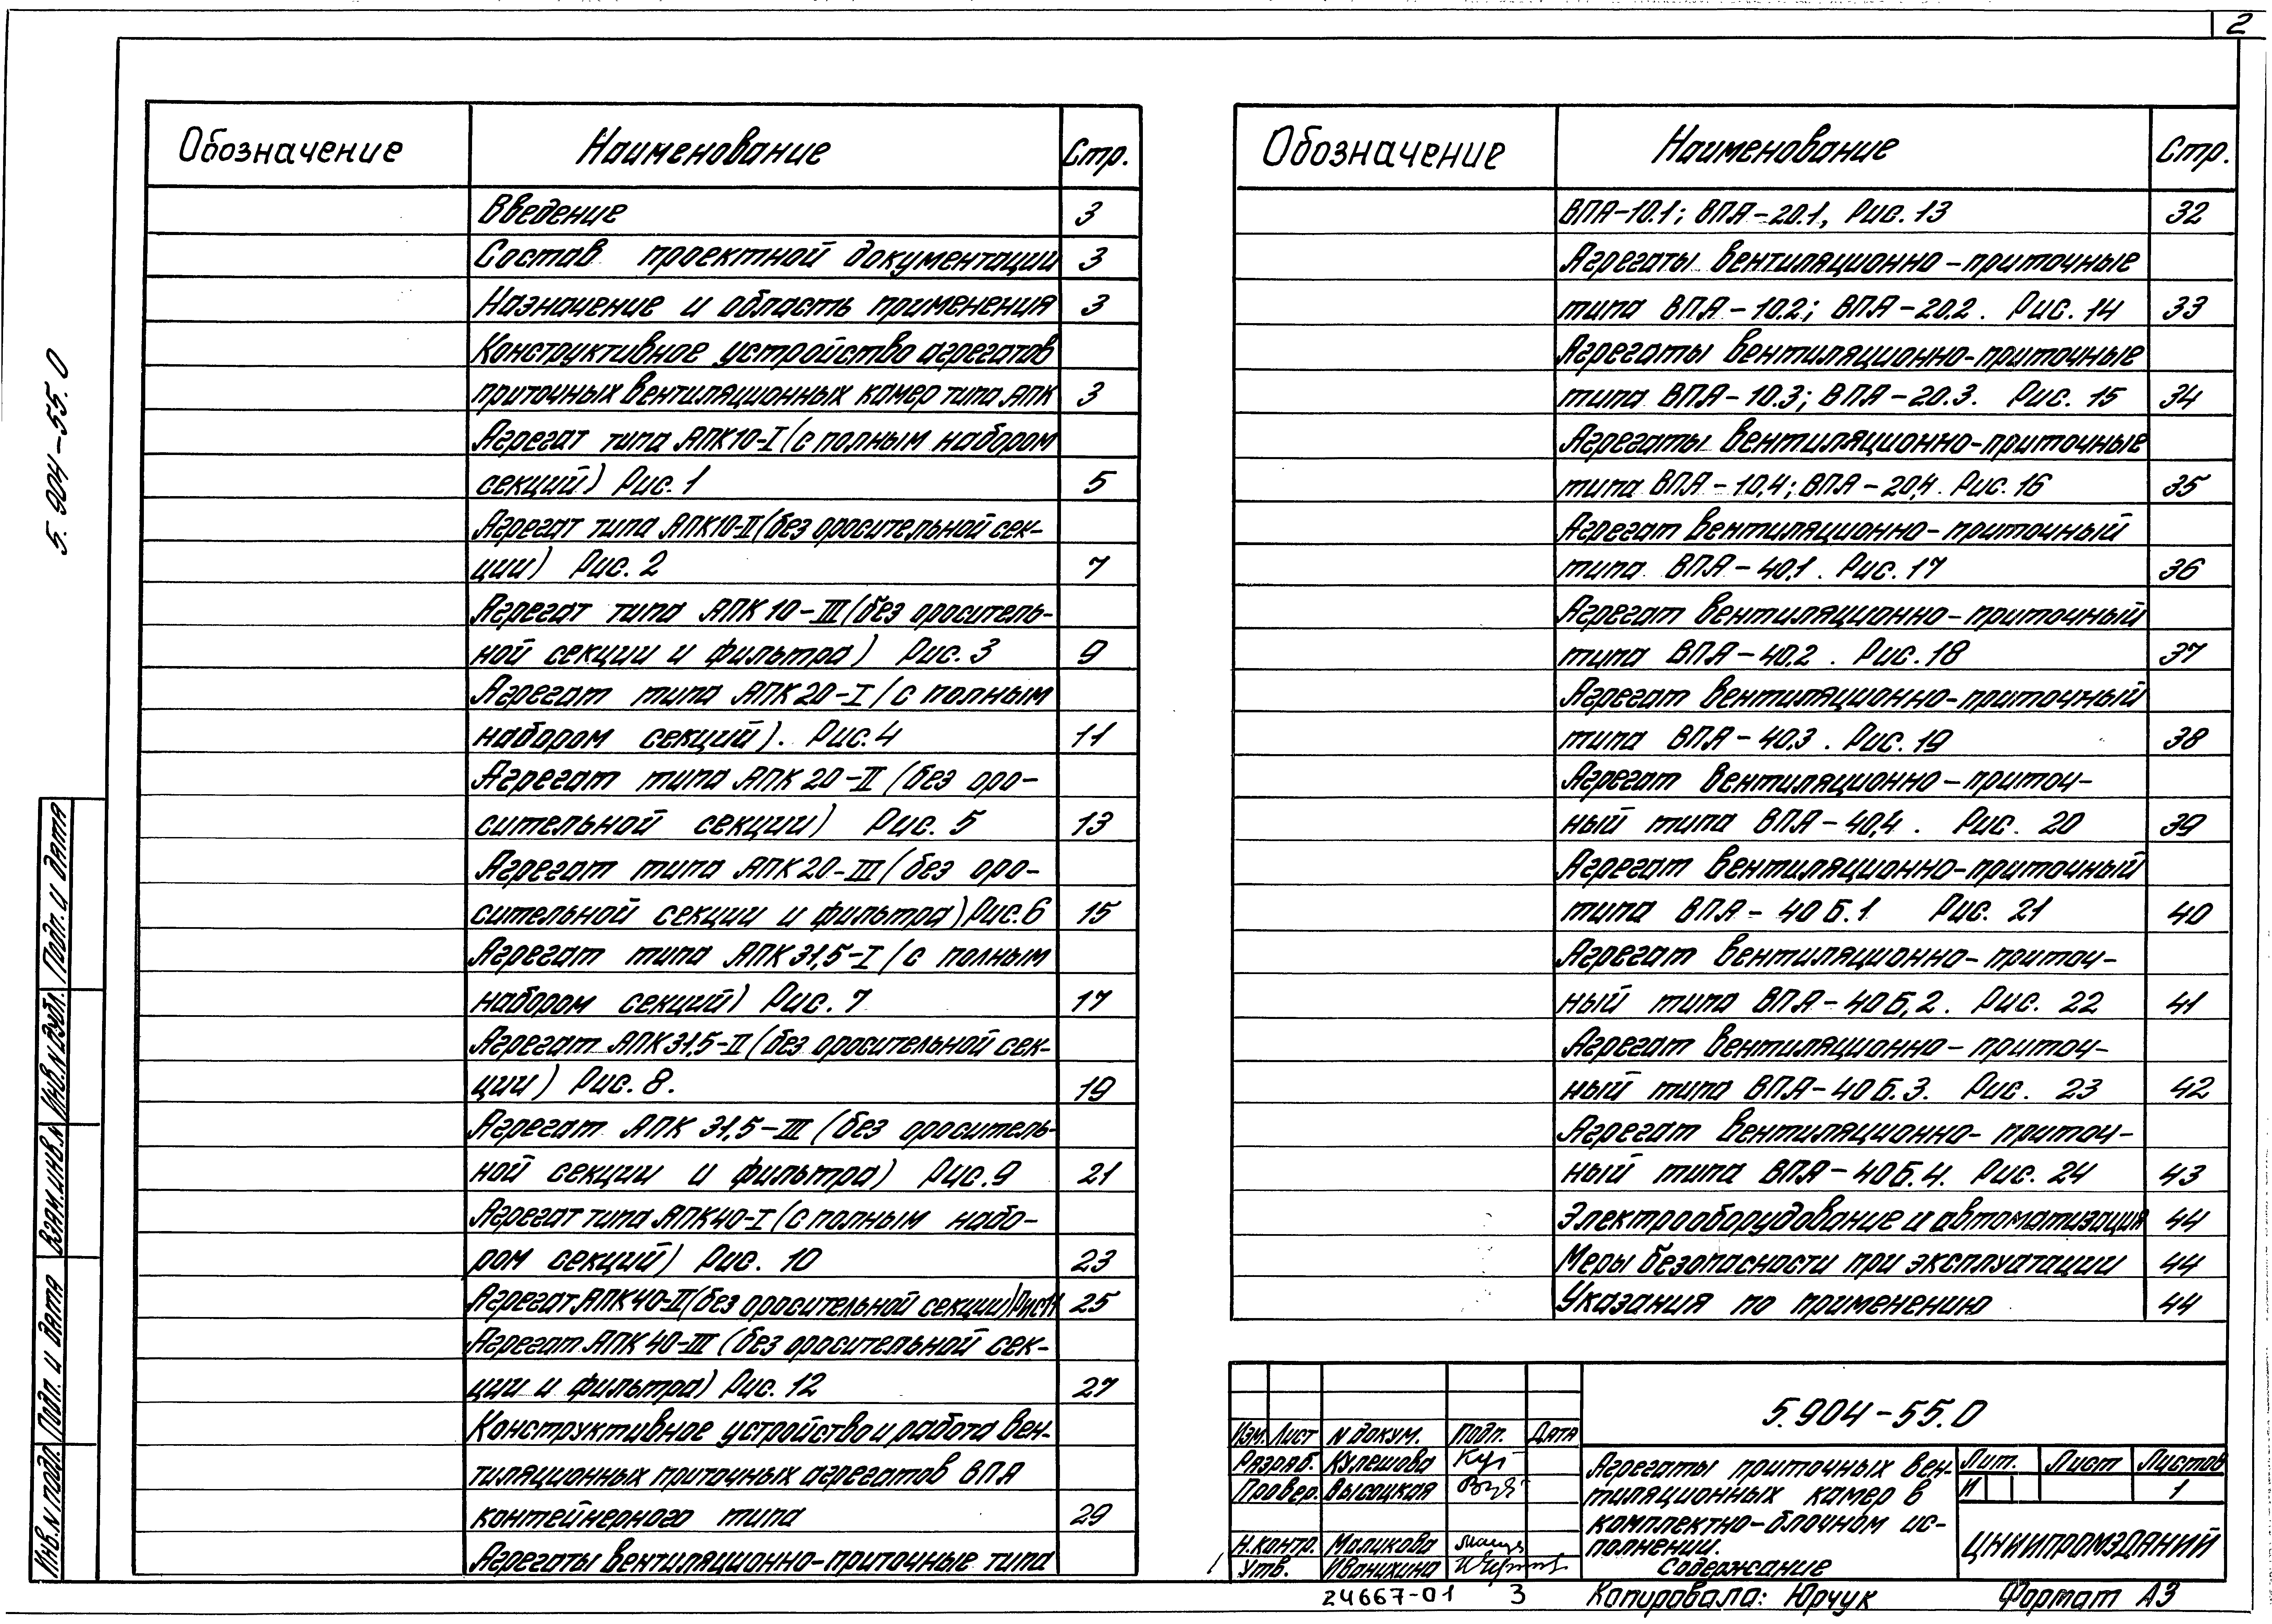 2
5.904-55.0
Обозначение Наименование Стр.
Введение 3
Состав проектной документации 3
Назначение и область применения 3
Конструктивное устройство агрегатов
приточных вентиляционных камер типа АПК 3
Агрегат типа АПК10-I (с полным набором
секций) Рис. 1 5
Агрегат типа АПК10-II (без оросительной сек-
ции) Рис. 2 7
Агрегат типа АПК 10-III (без ороситель-
ной секции и фильтра) Рис. 3 9
Агрегат типа АПК 20-I (с полным
набором секций). Рис. 4 11
Агрегат типа АПК 20-II (без оро-
сительной секции) Рис. 5 13
Агрегат типа АПК 20-III (без оро-
сительной секции и фильтра) Рис. 6 15
Агрегат типа АПК 31,5-I (с полным
набором секций) Рис. 7 17
Агрегат АПК 31,5-II (без оросительной сек-
ции) Рис. 8. 19
Агрегат АПК 31,5-III (без ороситель-
ной секции и фильтра) Рис. 9 21
Агрегат типа АПК40-I (с полным набо-
ром секций) Рис. 10 23
Агрегат АПК40-II (без оросительной секции) Рис 11 25
Агрегат АПК 40-III (без оросительной сек-
ции и фильтра) Рис. 12 27
Конструктивное устройство и работа вен-
тиляционных приточных агрегатов ВПА
контейнерного типа 29
Агрегаты вентиляционно-приточные типа
Обозначение Наименование Стр.
ВПА-10.1; ВПА-20.1, Рис. 13 32
Агрегаты вентиляционно-приточные
типа ВПА-10.2; ВПА-20.2. Рис. 14 33
Агрегаты вентиляционно-приточные
типа ВПА-10.3; ВПА-20.3. Рис. 15 34
Агрегаты вентиляционно-приточные
типа ВПА-10,4; ВПА-20,4. Рис. 16 35
Агрегат вентиляционно-приточный
типа ВПА-40,1. Рис. 17 36
Агрегат вентиляционно-приточный
типа ВПА-40,2. Рис. 18 37
Агрегат вентиляционно-приточный
типа ВПА-40,3. Рис. 19 38
Агрегат вентиляционно-приточ-
ный типа ВПА-40,4. Рис. 20 39
Агрегат вентиляционно-приточный
типа ВПА-40 Б.1 Рис. 21 40
Агрегат вентиляционно-приточ-
ный типа ВПА-40Б,2. Рис. 22 41
Агрегат вентиляционно-приточ-
ный типа ВПА-40 Б.3. Рис. 23 42
Агрегат вентиляционно-приточ-
ный типа ВПА-40Б.4. Рис. 24 43
Электрооборудование и автоматизация 44
Меры безопасности при эксплуатации 44
Указания по применению 44
Инв.N подл. Подп. и дата Взам.инв.N Инв.N дубл. Подп. и дата
5.904-55.0
Изм. Лист N докум. Подп. Дата
Разраб. Кулешова
Провер. Высоцкая
Н.контр. Маликова
Утв. Иванихина
Агрегаты приточных вен-
тиляционных камер в
комплектно-блочном ис-
полнении.
Содержание
Лит. Лист Листов
И 1
ЦНИИПРОМЗДАНИЙ
24667-01 3 Копировала: Юрчук Формат А3